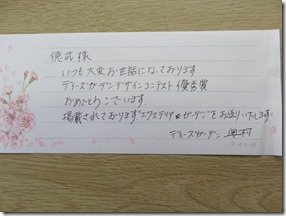 徳武様
いつも大変お世話になっております
ディーズガーデンデザインコンテスト優秀賞
おめでとうございます
掲載されております"エクステリア&ガーデン"をお送りいたします
ディーズガーデン 奥村